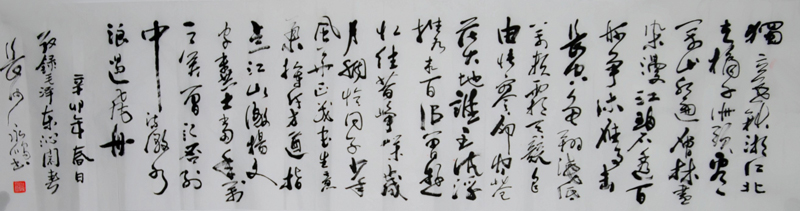 獨立寒秋湘江北
去橘子洲頭看
萬山紅遍層林盡
染漫江碧透百
舸爭流鷹擊
長空魚翔淺底
萬類霜天競自
由悵寥廓問蒼
茫大地誰主沉浮
攜來百侶曾遊
憶往昔崢嶸歲
月稠恰同學少年
風華正茂書生意
氣揮斥方遒指
點江山激揚文
字糞土當年萬
戶侯曾記否到
中流擊水
浪遏飛舟
辛卯年春日
敬錄毛澤東沁園春
長沙